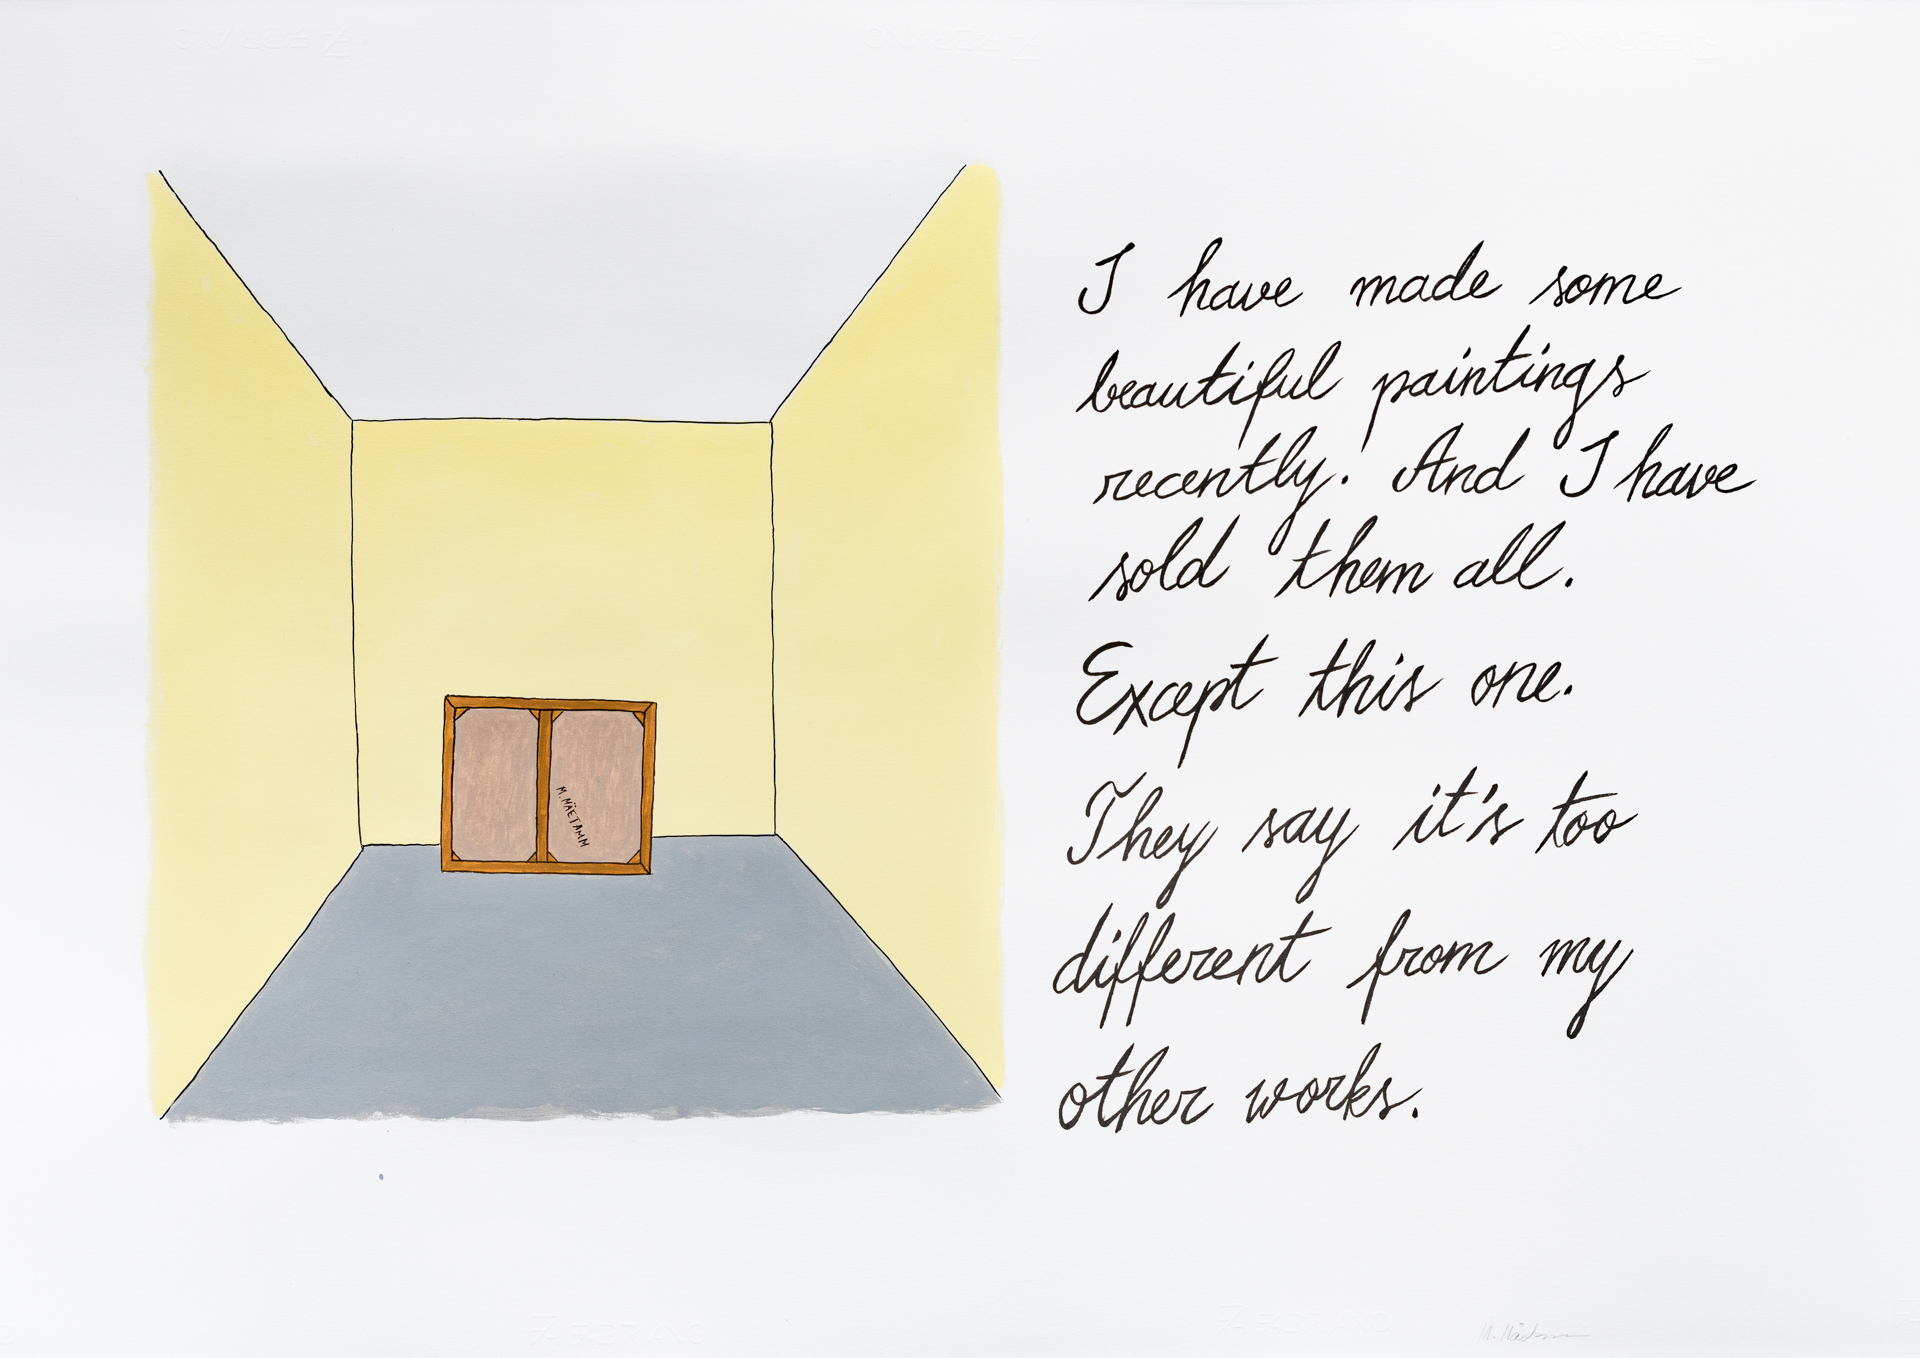 I have made some
beautiful paintings
recently. And I have
sold them all.
Except this one.
They say it's too
different from my
other works.
M. MÄETAMM
FABRIANO
FABRIANO
FABRIANO
FABRIANO
M. Mäetamm